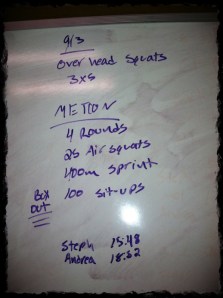 9/3
Over head Squats
3x5
METCON
4 Rounds
25 Air Squats
400m Sprint
100 sit-ups
Box
out
Steph 15:48
Andrea 18:52